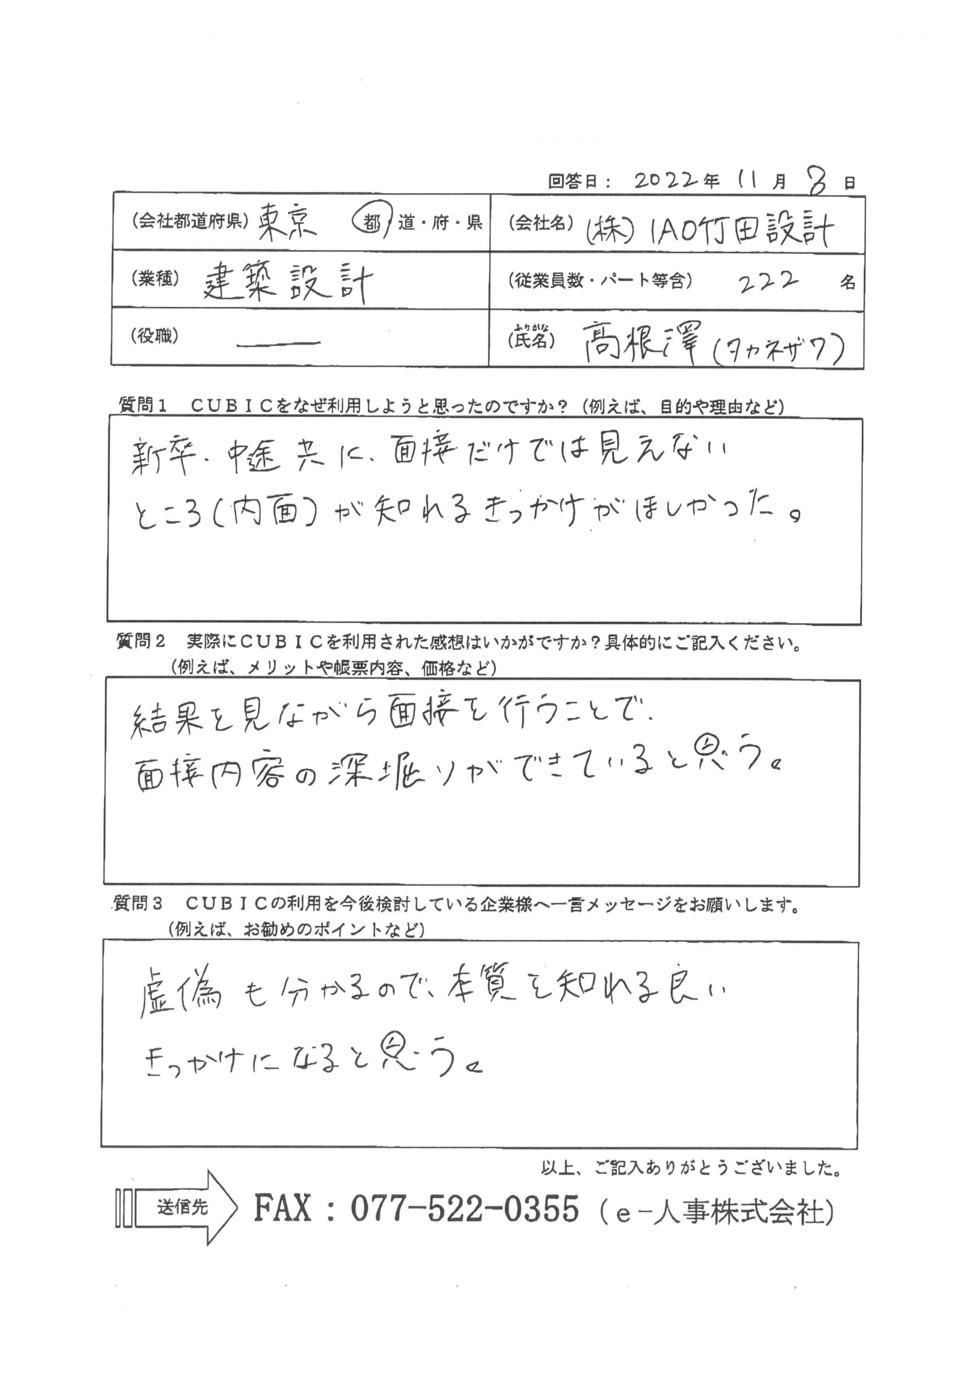 回答日： 2022年 11月 8日
(会社都道府県) 東京 都・道・府・県
(会社名) (株)IAO竹田設計
(業種) 建築設計
(従業員数・パート等含) 222 名
(役職) ―
ふりがな
(氏名) 高根澤(タカネザワ)
質問１　ＣＵＢＩＣをなぜ利用しようと思ったのですか？（例えば、目的や理由など）
新卒・中途共に、面接だけでは見えない
ところ(内面)が知れるきっかけがほしかった。
質問２　実際にＣＵＢＩＣを利用された感想はいかがですか？具体的にご記入ください。
（例えば、メリットや帳票内容、価格など）
結果を見ながら面接を行うことで、
面接内容の深堀りができていると思う。
質問３　ＣＵＢＩＣの利用を今後検討している企業様へ一言メッセージをお願いします。
（例えば、お勧めのポイントなど）
虚偽も分かるので、本質を知れる良い
きっかけになると思う。
以上、ご記入ありがとうございました。
送信先 FAX：077-522-0355（e-人事株式会社）